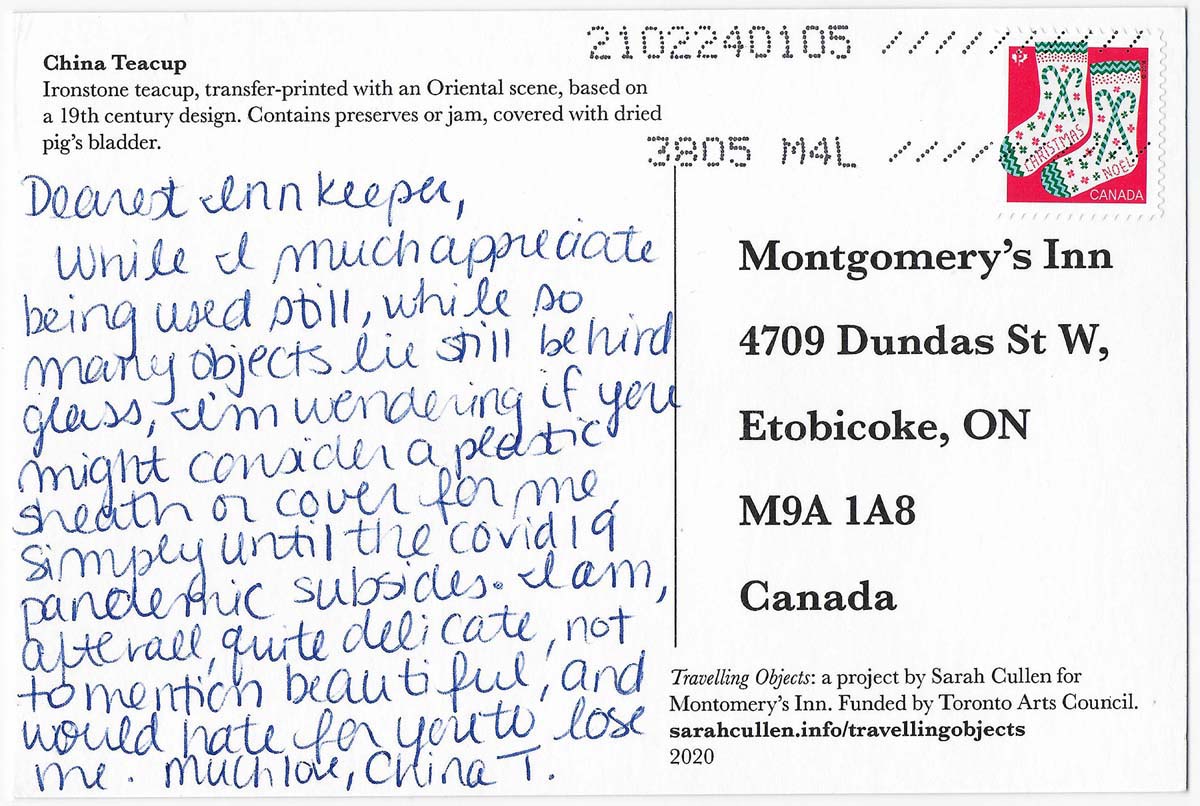 China Teacup
Ironstone teacup, transfer-printed with an Oriental scene, based on
a 19th century design. Contains preserves or jam, covered with dried
pig's bladder.
2102240105
3805 M4L
CHRISTMAS
NOEL
CANADA
Dearest Innkeeper,
While I much appreciate
being used still, while so
many objects lie still behind
glass, I'm wondering if you
might consider a plastic
sheath or cover for me,
simply until the covid 19
pandemic subsides. I am,
after all, quite delicate, not
to mention beautiful, and
would hate for you to lose
me. Much love, China T.
Montgomery's Inn
4709 Dundas St W,
Etobicoke, ON
M9A 1A8
Canada
Travelling Objects: a project by Sarah Cullen for
Montomery's Inn. Funded by Toronto Arts Council.
sarahcullen.info/travellingobjects
2020